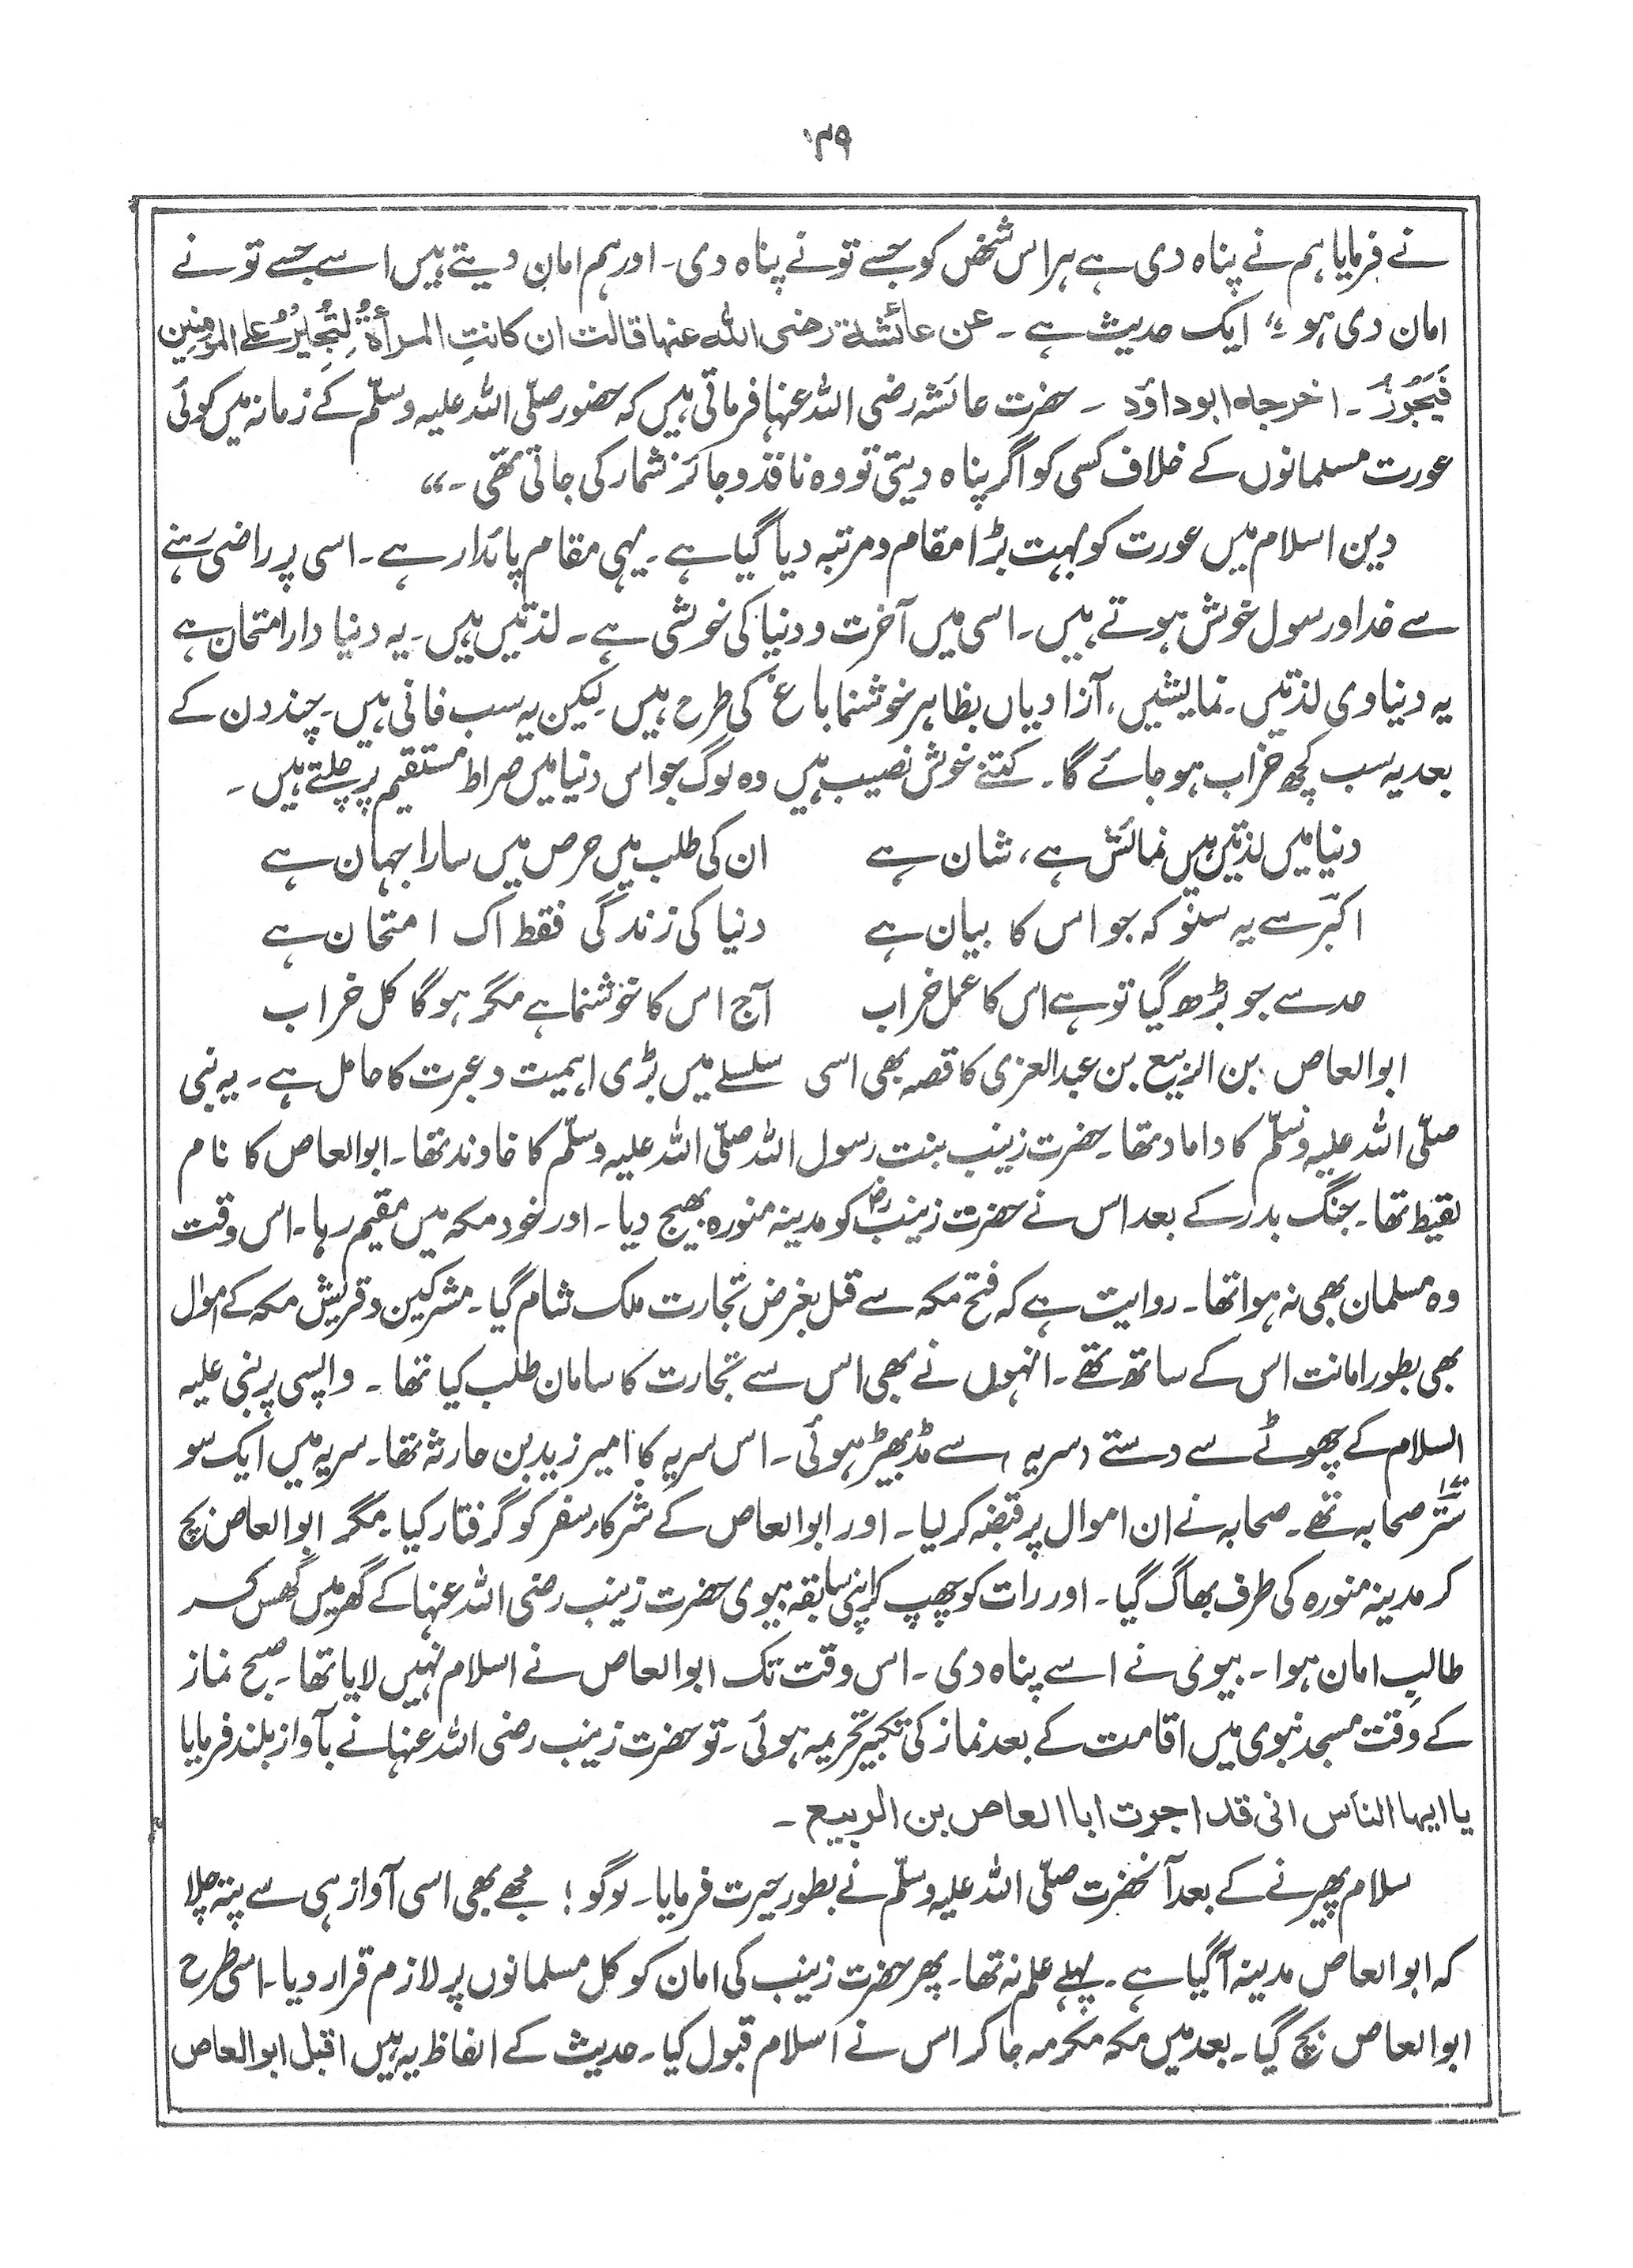 ۳۹
نے فرمایا ہم نے پناہ دی ہے ہر اس شخص کو جسے تو نے پناہ دی۔ اور ہم امان دیتے ہیں اسے جسے تو نے
امان دی ہو۔“ ایک حدیث ہے ۔ عن عائشۃ رضی اللہ عنہا قالت ان کانتِ المرأۃُ لِتُجِیْرُ علی المؤمنین
فَیَجُوْزُ ۔ اخرجہ ابوداؤد ۔ حضرت عائشہ رضی اللہ عنہا فرماتی ہیں کہ حضور صلّی اللہ علیہ وسلّم کے زمانہ میں کوئی
عورت مسلمانوں کے خلاف کسی کو اگر پناہ دیتی تو وہ نافذ و جائز شمار کی جاتی تھی ۔“
دین اسلام میں عورت کو بہت بڑا مقام و مرتبہ دیا گیا ہے ۔ یہی مقام پائدار ہے ۔ اسی پر راضی رہنے
سے خدا اور رسول خوش ہوتے ہیں ۔ اسی میں آخرت و دنیا کی خوشی ہے ۔ لذتیں ہیں ۔ یہ دنیا دار امتحان ہے
یہ دنیاوی لذتیں ۔ نمایشیں ، آزادیاں بظاہر خوشنما باغ کی طرح ہیں ۔ لیکن یہ سب فانی ہیں ۔ چند دن کے
بعد یہ سب کچھ خراب ہو جائے گا ۔ کتنے خوش نصیب ہیں وہ لوگ جو اس دنیا میں صراط مستقیم پر چلتے ہیں ۔
دنیا میں لذتیں ہیں نمائش ہے ، شان ہے ان کی طلب میں حرص میں سارا جہان ہے
اکبرؔ سے یہ سنو کہ جو اس کا بیان ہے دنیا کی زندگی فقط اک امتحان ہے
حد سے جو بڑھ گیا تو ہے اس کا عمل خراب آج اس کا خوشنما ہے مگر ہو گا کل خراب
ابوالعاص بن الربیع بن عبدالعزی کا قصہ بھی اسی سلسلے میں بڑی اہمیت و عبرت کا حامل ہے ۔ یہ نبی
صلّی اللہ علیہ وسلّم کا داماد تھا ۔ حضرت زینب بنت رسول اللہ صلّی اللہ علیہ وسلّم کا خاوند تھا ۔ ابوالعاص کا نام
لقیط تھا ۔ جنگ بدر کے بعد اس نے حضرت زینبؓ کو مدینہ منورہ بھیج دیا ۔ اور خود مکہ میں مقیم رہا ۔ اس وقت
وہ مسلمان بھی نہ ہوا تھا ۔ روایت ہے کہ فتح مکہ سے قبل بغرض تجارت ملک شام گیا ۔ مشرکین و قریش مکہ کے اموال
بھی بطور امانت اس کے ساتھ تھے ۔ انہوں نے بھی اس سے تجارت کا سامان طلب کیا تھا ۔ واپسی پر نبی علیہ
السلام کے چھوٹے سے دستے (سریہ) سے مڈبھیڑ ہوئی ۔ اس سریہ کا امیر زید بن حارثہ تھا ۔ سریہ میں ایک سو
ستّر ۱۷۰ صحابہ تھے ۔ صحابہ نے ان اموال پر قبضہ کر لیا ۔ اور ابوالعاص کے شرکاء سفر کو گرفتار کیا ۔ مگر ابوالعاص بچ
کر مدینہ منورہ کی طرف بھاگ گیا ۔ اور رات کو چھپ کر اپنی سابقہ بیوی حضرت زینب رضی اللہ عنہا کے گھر میں گھس کر
طالبِ امان ہوا ۔ بیوی نے اسے پناہ دی ۔ اس وقت تک ابوالعاص نے اسلام نہیں لایا تھا ۔ صبح نماز
کے وقت مسجد نبوی میں اقامت کے بعد نماز کی تکبیر تحریمہ ہوئی ۔ تو حضرت زینب رضی اللہ عنہا نے بآواز بلند فرمایا
یا ایہا الناس انی قد اجرت ابا العاص بن الربیع ۔
سلام پھیرنے کے بعد آنحضرت صلّی اللہ علیہ وسلّم نے بطور حیرت فرمایا ۔ لوگو ! مجھے بھی اسی آواز ہی سے پتہ چلا
کہ ابوالعاص مدینہ آ گیا ہے ۔ پہلے علم نہ تھا ۔ پھر حضرت زینب کی امان کو کل مسلمانوں پر لازم قرار دیا ۔ اسی طرح
ابوالعاص بچ گیا ۔ بعد میں مکہ مکرمہ جا کر اس نے اسلام قبول کیا ۔ حدیث کے الفاظ یہ ہیں اقبل ابوالعاص